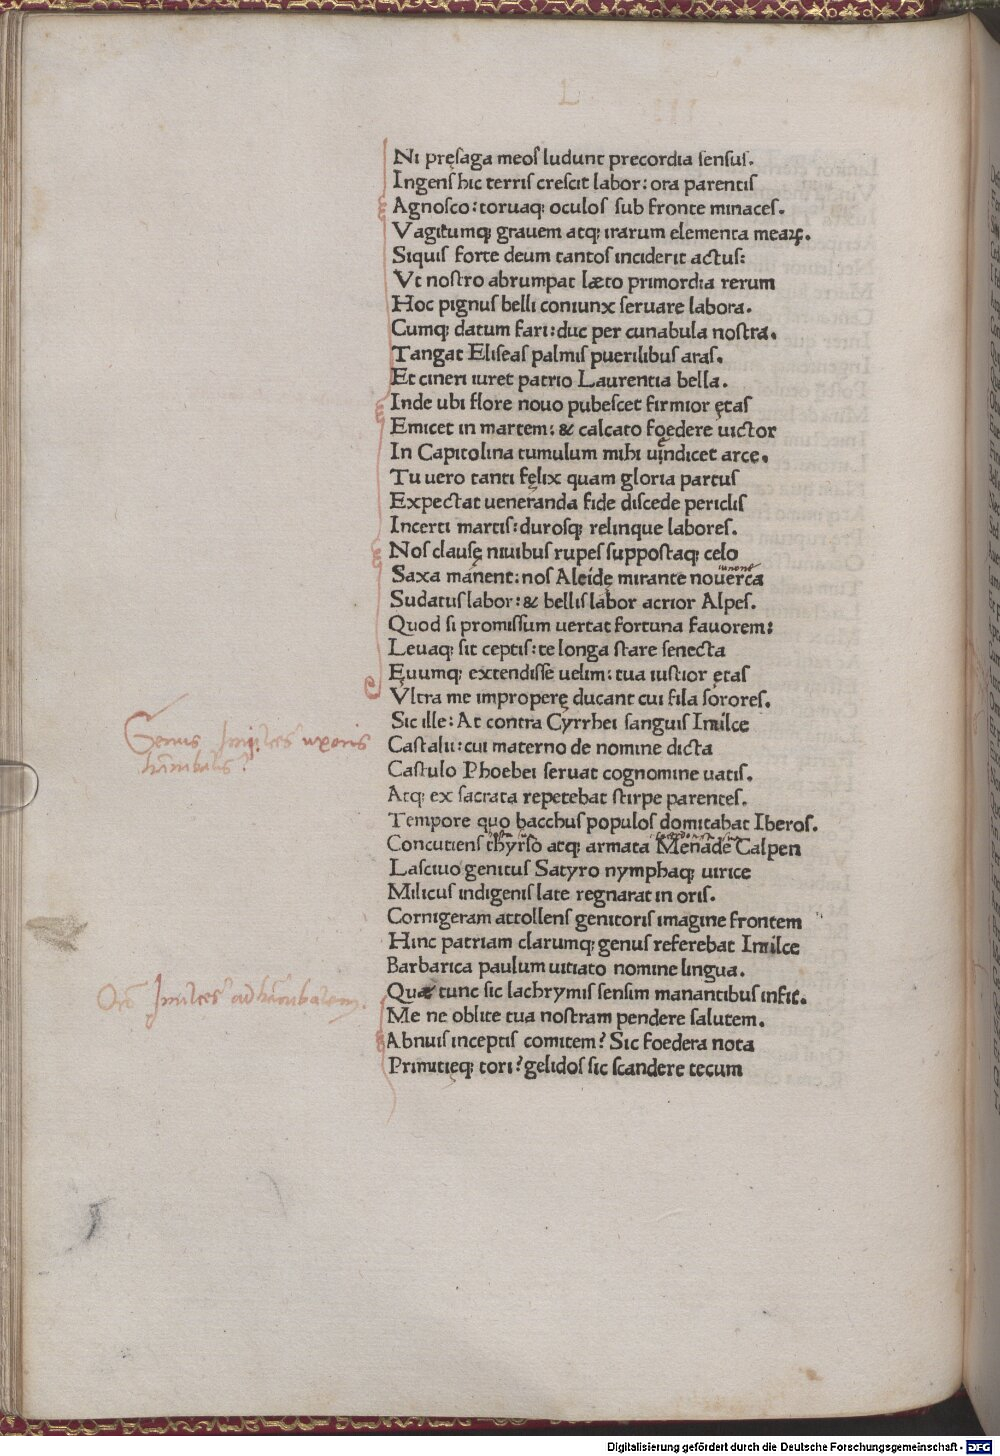 L
Ni pręsaga meos ludunt precordia sensus.
Ingens hic terris crescit labor: ora parentis
Agnosco: toruaq; oculos sub fronte minaces.
Vagitumq; grauem atq; irarum elementa meaꝝ.
Siquis forte deum tantos inciderit actus:
Vt nostro abrumpat læto primordia rerum
Hoc pignus belli coniunx seruare labora.
Cumq; datum fari: duc per cunabula nostra.
Tangat Eliseas palmis puerilibus aras.
Et cineri iuret patrio Laurentia bella.
Inde ubi flore nouo pubescet firmior ętas
Emicet in martem: & calcato fœdere uictor
In Capitolina tumulum mihi uindicet arce.
Tu uero tanti fęlix quam gloria partus
Expectat ueneranda fide discede periclis
Incerti martis: durosq; relinque labores.
Nos clausę niuibus rupes suppostaq; celo
iunone
Saxa manent: nos Alcidę mirante nouerca
Sudatus labor: & bellis labor acrior Alpes.
Quod si promissum uertat fortuna fauorem:
Leuaq; sit ceptis: te longa stare senecta
Ęuumq; extendisse uelim: tua iustior ętas
Vltra me improperę ducant cui fila sorores.
Sic ille: At contra Cyrrhei sanguis Imilce
Genus Imilces uxoris
hānibalis?
Castalii: cui materno de nomine dicta
Castulo Phoebei seruat cognomine uatis.
Atq; ex sacrata repetebat stirpe parentes.
Tempore quo bacchus populos domitabat Iberos.
Concutiens thyrso atq; armata Menade Calpen
Lasciuo genitus Satyro nymphaq; uirice
Milicus indigenis late regnarat in oris.
Cornigeram attollens genitoris imagine frontem
Hinc patriam clarumq; genus referebat Imilce
Barbarica paulum uitiato nomine lingua.
Orō Imilces ad hānibalem.
Quæ tunc sic lachrymis sensim manantibus infit.
Me ne oblite tua nostram pendere salutem.
Abnuis inceptis comitem? Sic foedera nota
Primitięq; tori? gelidos sic scandere tecum
Digitalisierung gefördert durch die Deutsche Forschungsgemeinschaft - DFG